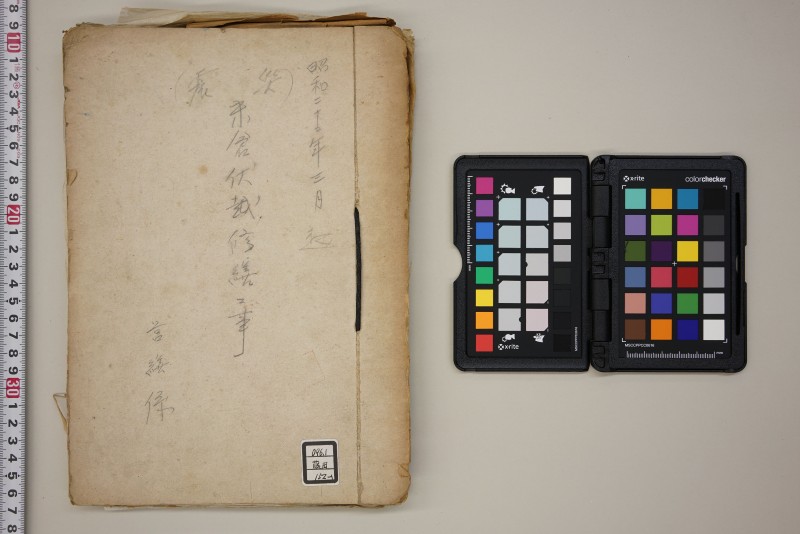 昭和二十年二月 起
(震 災)
米倉伏越修繕工事
営繕係
046.1
藤田
152-1
x-rite
x-rite
colorchecker
MSCCPPCC0616
8 9 10 1 2 3 4 5 6 7 8 9 20 1 2 3 4 5 6 7 8 9 30 1 2 3 4 5 6 7 8